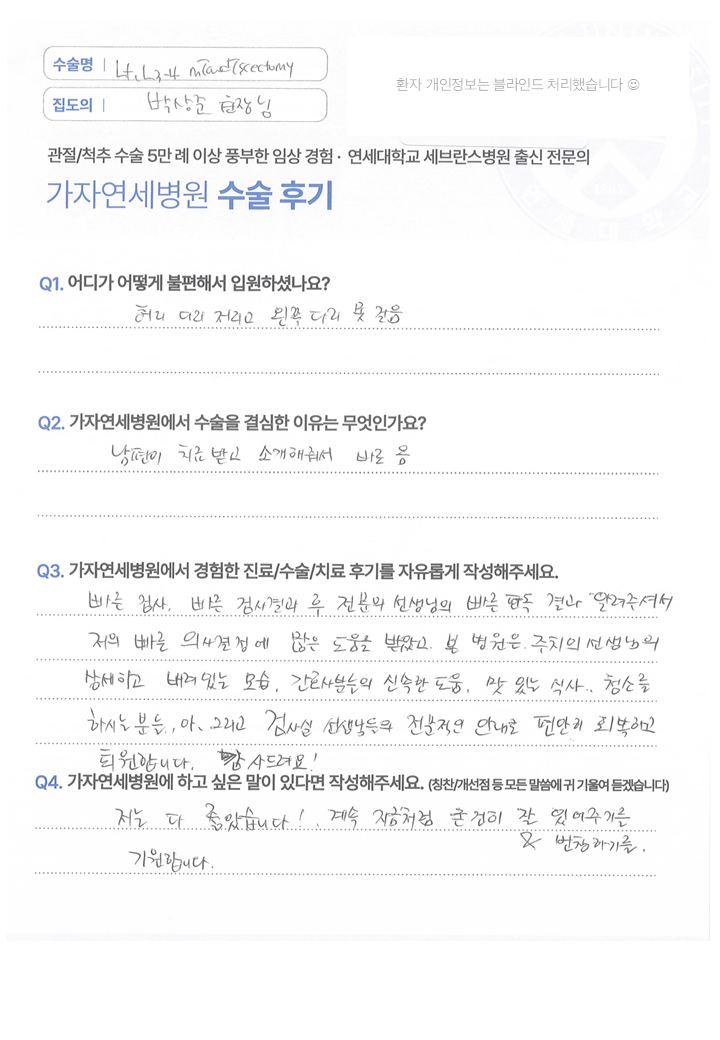 수술명 | Lt. L3-4 discectomy
환자 개인정보는 블라인드 처리했습니다 ☺
집도의 | 박상준 원장님
관절/척추 수술 5만 례 이상 풍부한 임상 경험 · 연세대학교 세브란스병원 출신 전문의
가자연세병원 수술 후기
Q1. 어디가 어떻게 불편해서 입원하셨나요?
허리 다리 저리고 왼쪽 다리 못 걸음
Q2. 가자연세병원에서 수술을 결심한 이유는 무엇인가요?
남편이 치료받고 소개해줘서 바로 옴
Q3. 가자연세병원에서 경험한 진료/수술/치료 후기를 자유롭게 작성해주세요.
빠른 검사, 빠른 검사결과 후 전문의 선생님의 빠른 판독 결과 알려주셔서
저의 빠른 의사결정에 많은 도움을 받았고. 본 병원은 주치의 선생님의
상세하고 배려있는 모습, 간호사분들의 신속한 도움, 맛 있는 식사., 청소를
하시는 분들, 아, 그리고 검사실 선생님들의 전문적인 안내로 편안히 회복하고
퇴원합니다. 감사드려요!
Q4. 가자연세병원에 하고 싶은 말이 있다면 작성해주세요. (칭찬/개선점 등 모든 말씀에 귀 기울여 듣겠습니다)
저는 다 좋았습니다!. 계속 지금처럼 굳건히 잘 있어주기를
& 번창하기를.
기원합니다.